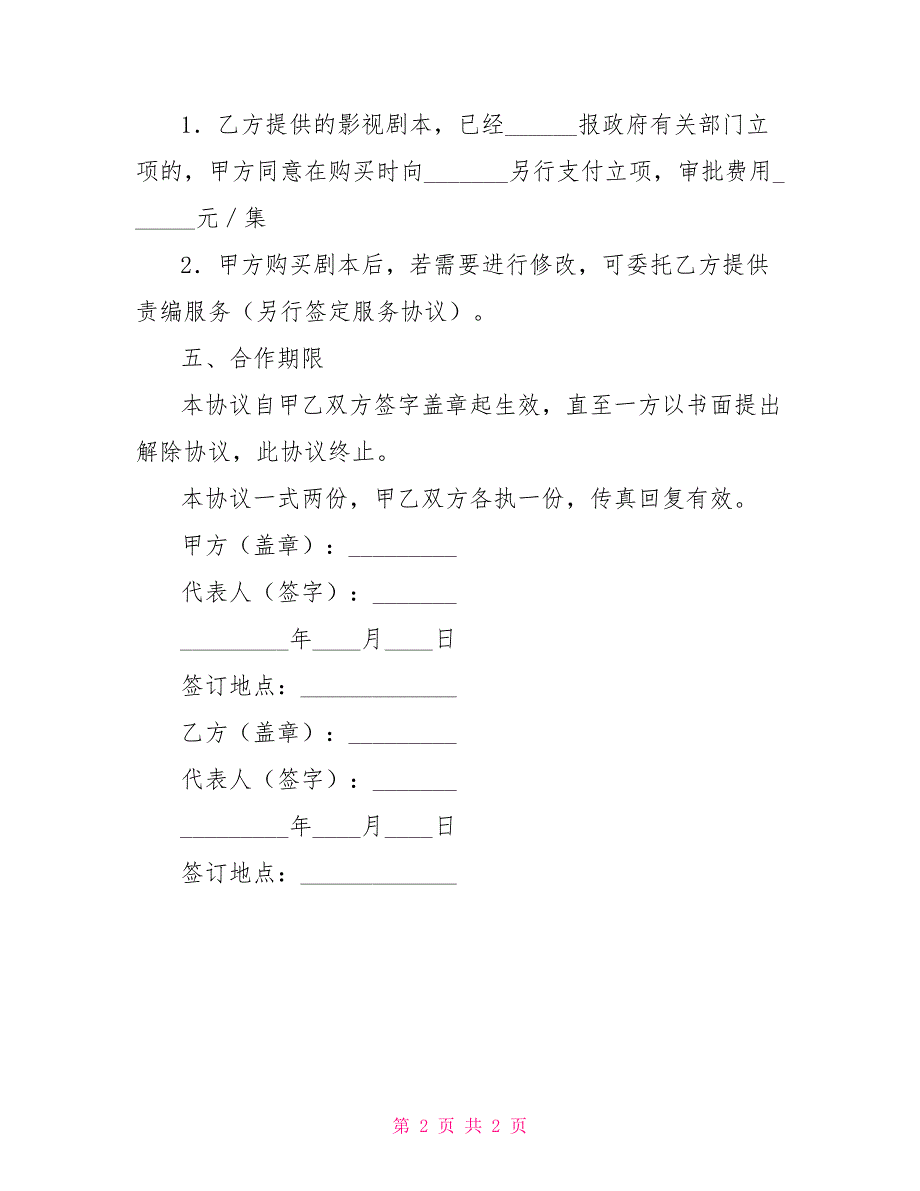 1．乙方提供的影视剧本，已经______报政府有关部门立
项的，甲方同意在购买时向_______另行支付立项，审批费用_
_____元／集
2．甲方购买剧本后，若需要进行修改，可委托乙方提供
责编服务（另行签定服务协议）。
五、合作期限
本协议自甲乙双方签字盖章起生效，直至一方以书面提出
解除协议，此协议终止。
本协议一式两份，甲乙双方各执一份，传真回复有效。
甲方（盖章）：_________
代表人（签字）：_______
_________年____月____日
签订地点：_____________
乙方（盖章）：_________
代表人（签字）：_______
_________年____月____日
签订地点：_____________
第 2 页 共 2 页